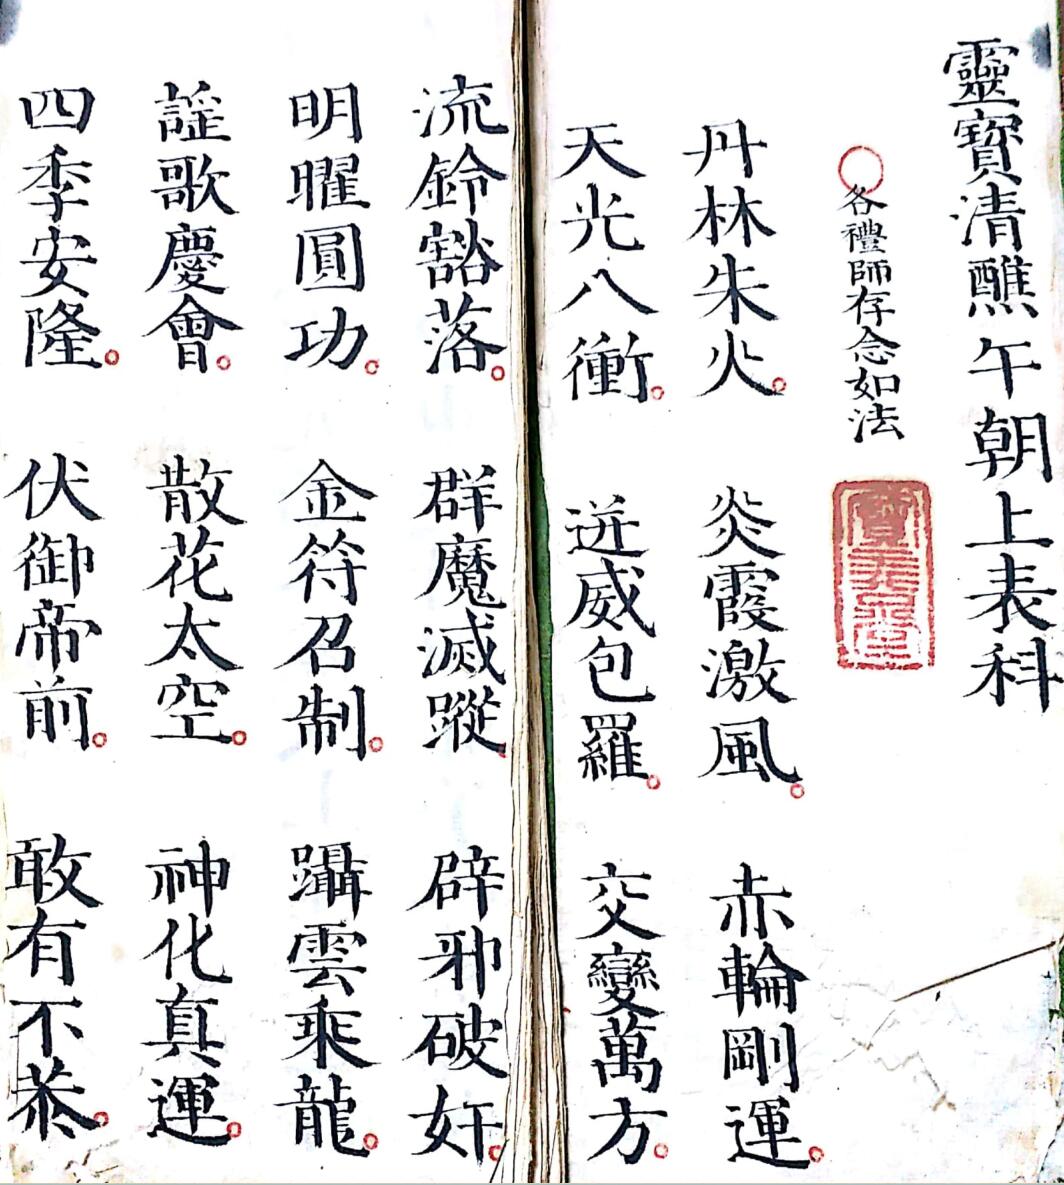 靈寶清醮午朝上表科
各禮師存念如法
丹林朱火。炎霞激風。赤輪剛運。
天光八衝。迸威包羅。交變萬方。
流鈴豁落。群魔滅蹤。辟邪破奸。
明曜圓功。金符召制。躡雲乘龍。
謡歌慶會。散花太空。神化真運。
四季安隆。伏御帝前。敢有不恭。